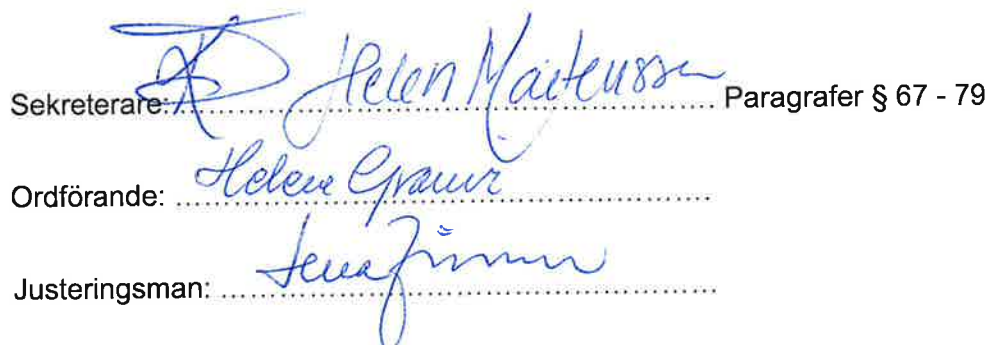 Sekreterare: Helen Martenssen Paragrafer § 67 - 79
Ordförande: Helene
Justeringsman: Lena